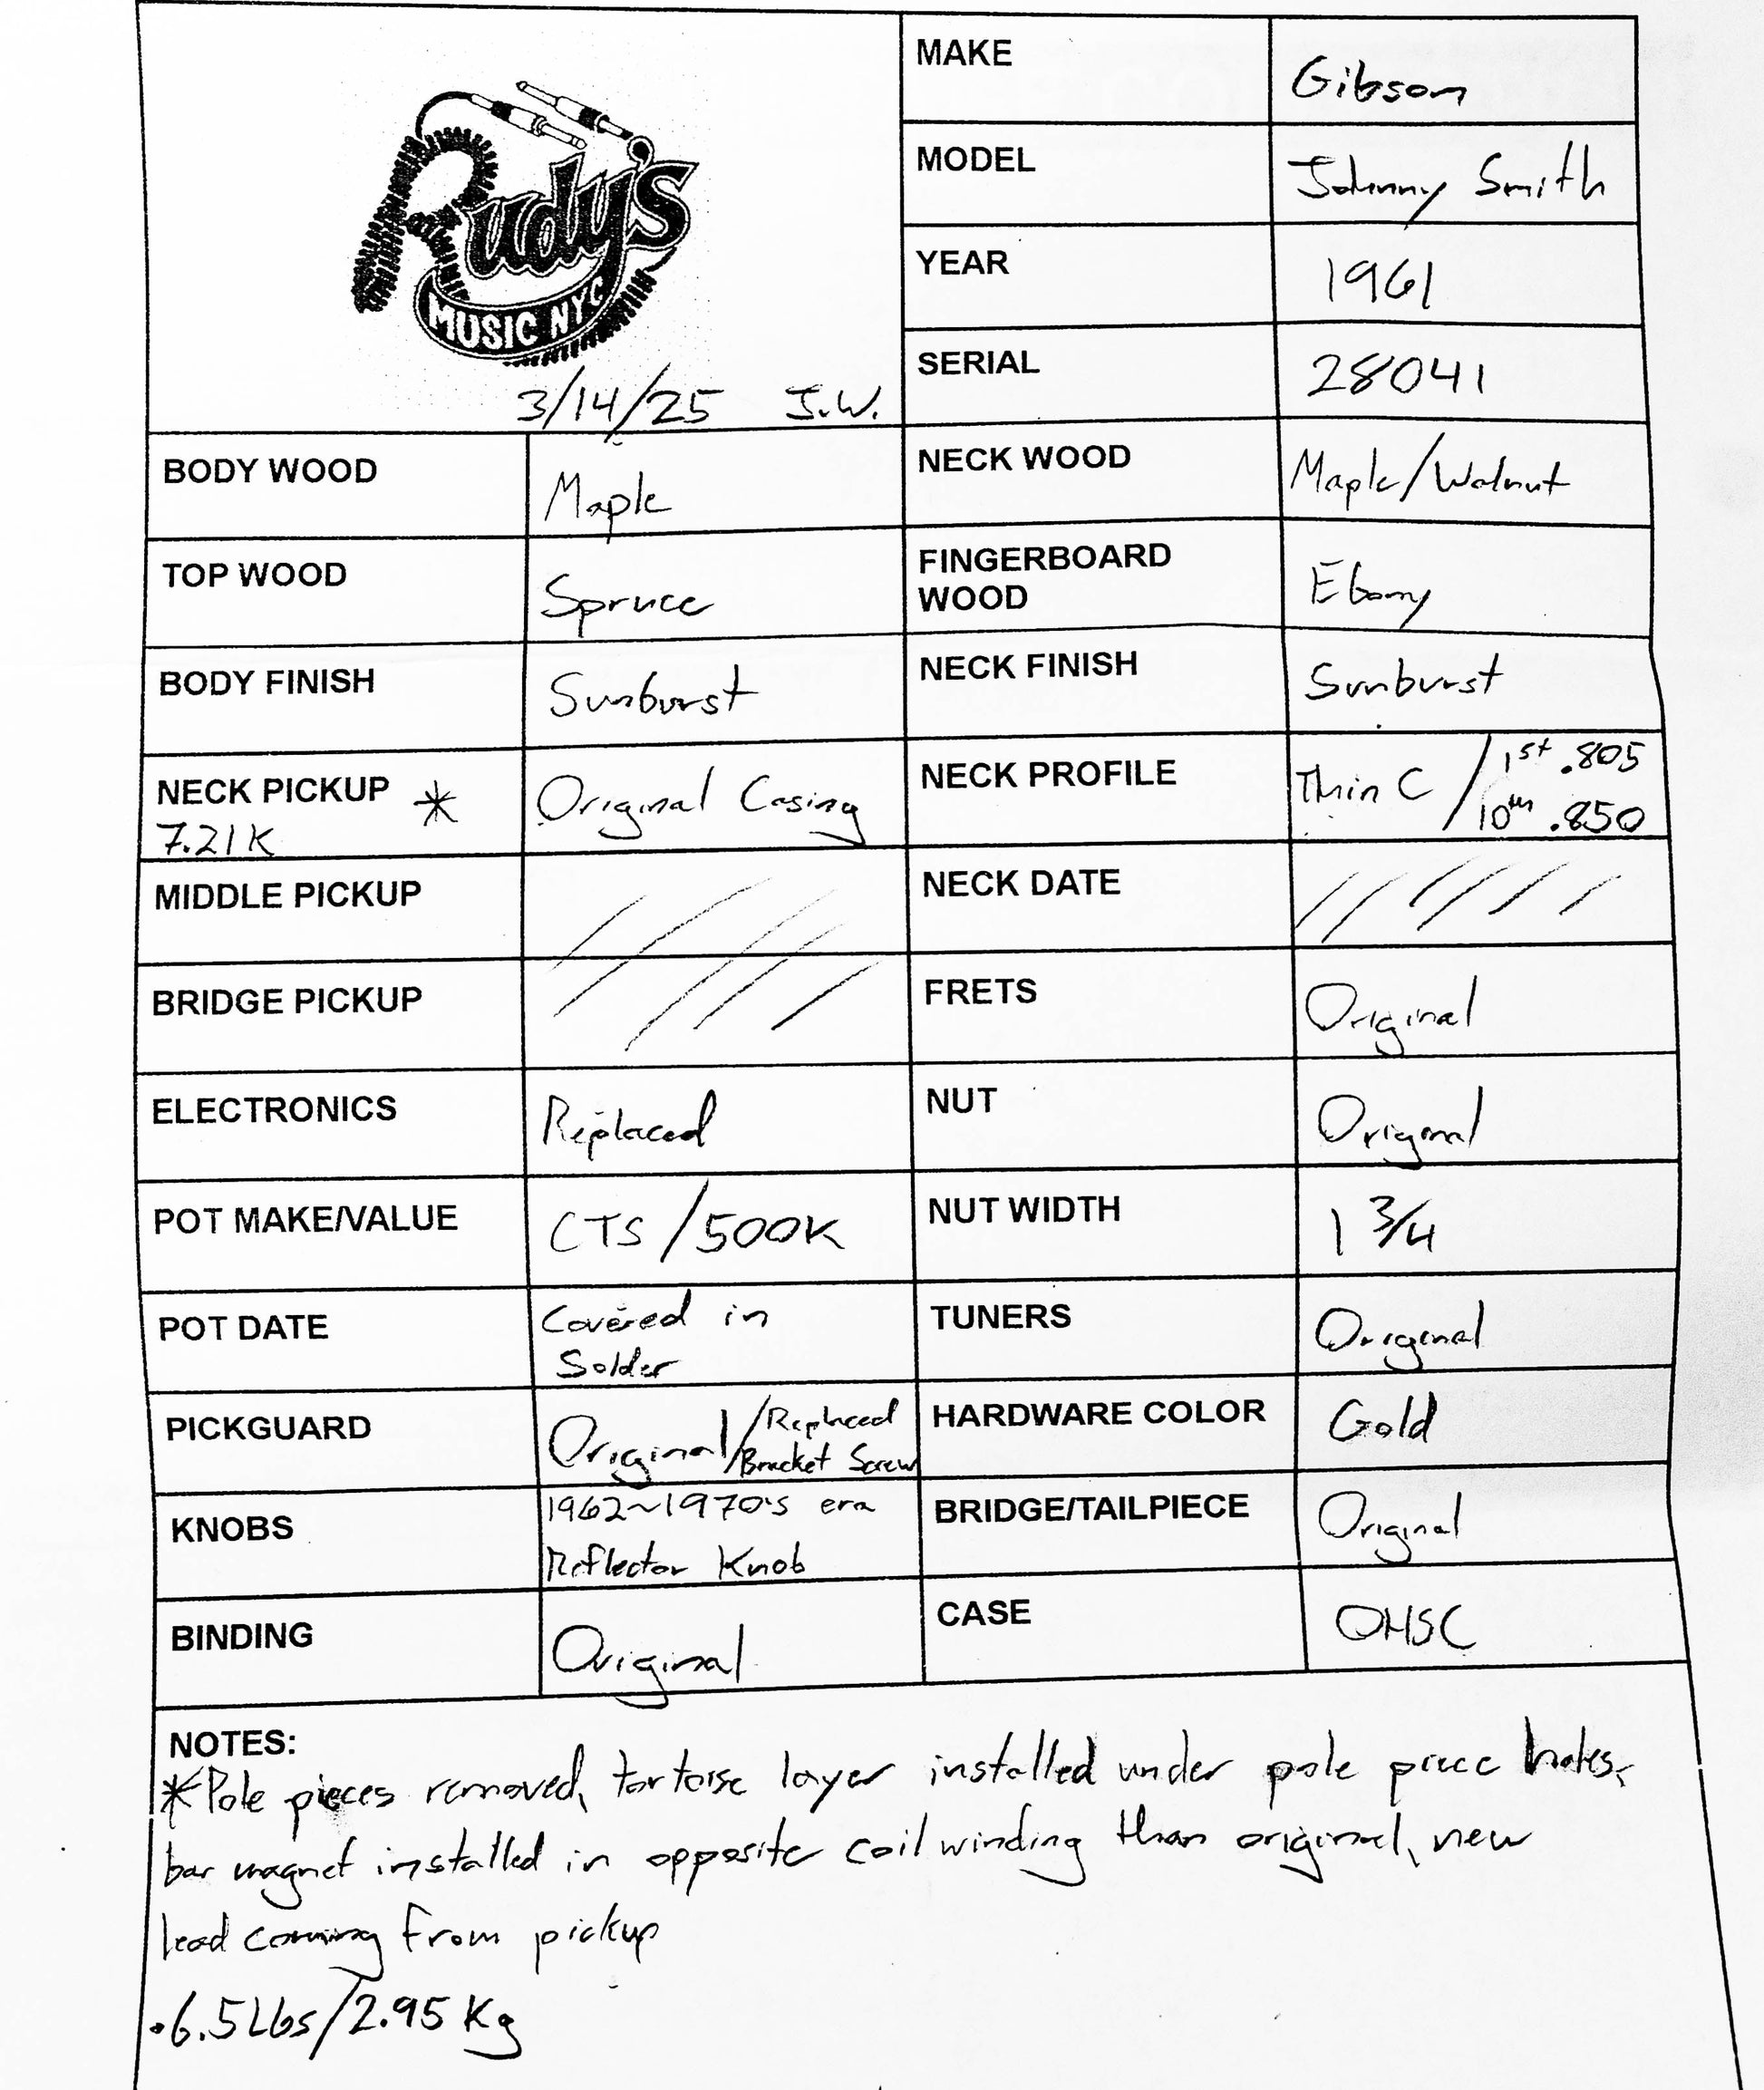 Rudy's
MUSIC NYC
3/14/25 J.W.
MAKE Gibson
MODEL Johnny Smith
YEAR 1961
SERIAL 28041
BODY WOOD Maple NECK WOOD Maple/Walnut
TOP WOOD Spruce FINGERBOARD
WOOD Ebony
BODY FINISH Sunburst NECK FINISH Sunburst
NECK PICKUP * Original Casing NECK PROFILE Thin C / 1st .805
7.21K 10th .850
MIDDLE PICKUP NECK DATE
BRIDGE PICKUP FRETS Original
ELECTRONICS Replaced NUT Original
POT MAKE/VALUE CTS /500K NUT WIDTH 1 3/4
POT DATE Covered in
Solder TUNERS Original
PICKGUARD Original/Replaced
Bracket Screw HARDWARE COLOR Gold
KNOBS 1962~1970's era
Reflector Knob BRIDGE/TAILPIECE Original
BINDING Original CASE OHSC
NOTES:
*Pole pieces removed, tortoise layer installed under pole piece holes,
bar magnet installed in opposite coil winding than original, new
lead coming from pickup
·6.5Lbs/2.95 Kg